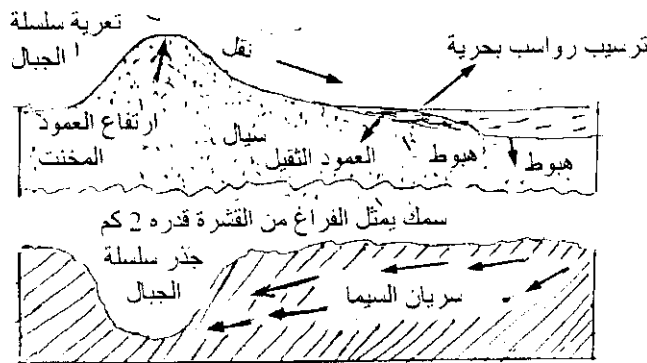 تعرية سلسلة
الجبال
نقل
ترسيب رواسب بحرية
ارتفاع العمود
المخنت
سيال
العمود الثقيل
هبوط
هبوط
سمك يمثل الفراغ من القشرة قدره 2 كم
جذر سلسلة
الجبال
سريان السيما